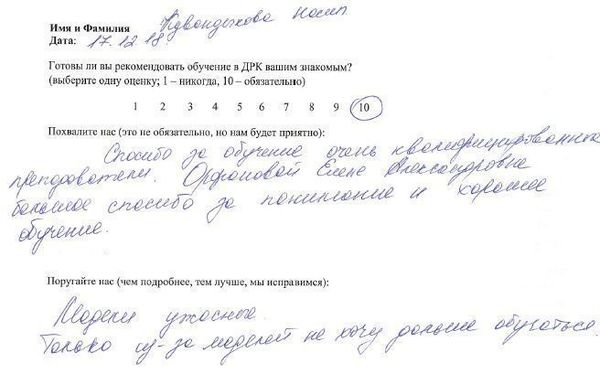 Имя и Фамилия
Дата: 17.12.18.
Готовы ли вы рекомендовать обучение в ДРК вашим знакомым?
(выберите одну оценку; 1 – никогда, 10 – обязательно)
1 2 3 4 5 6 7 8 9 10
Похвалите нас (это не обязательно, но нам будет приятно):
Спасибо за обучение очень квалифицированные
преподаватели. Елене Александровне
большое спасибо за понимание и хорошее
обучение.
Поругайте нас (чем подробнее, тем лучше, мы исправимся):
Модели ужасные.
Только из-за моделей не хочу дальше обучаться.